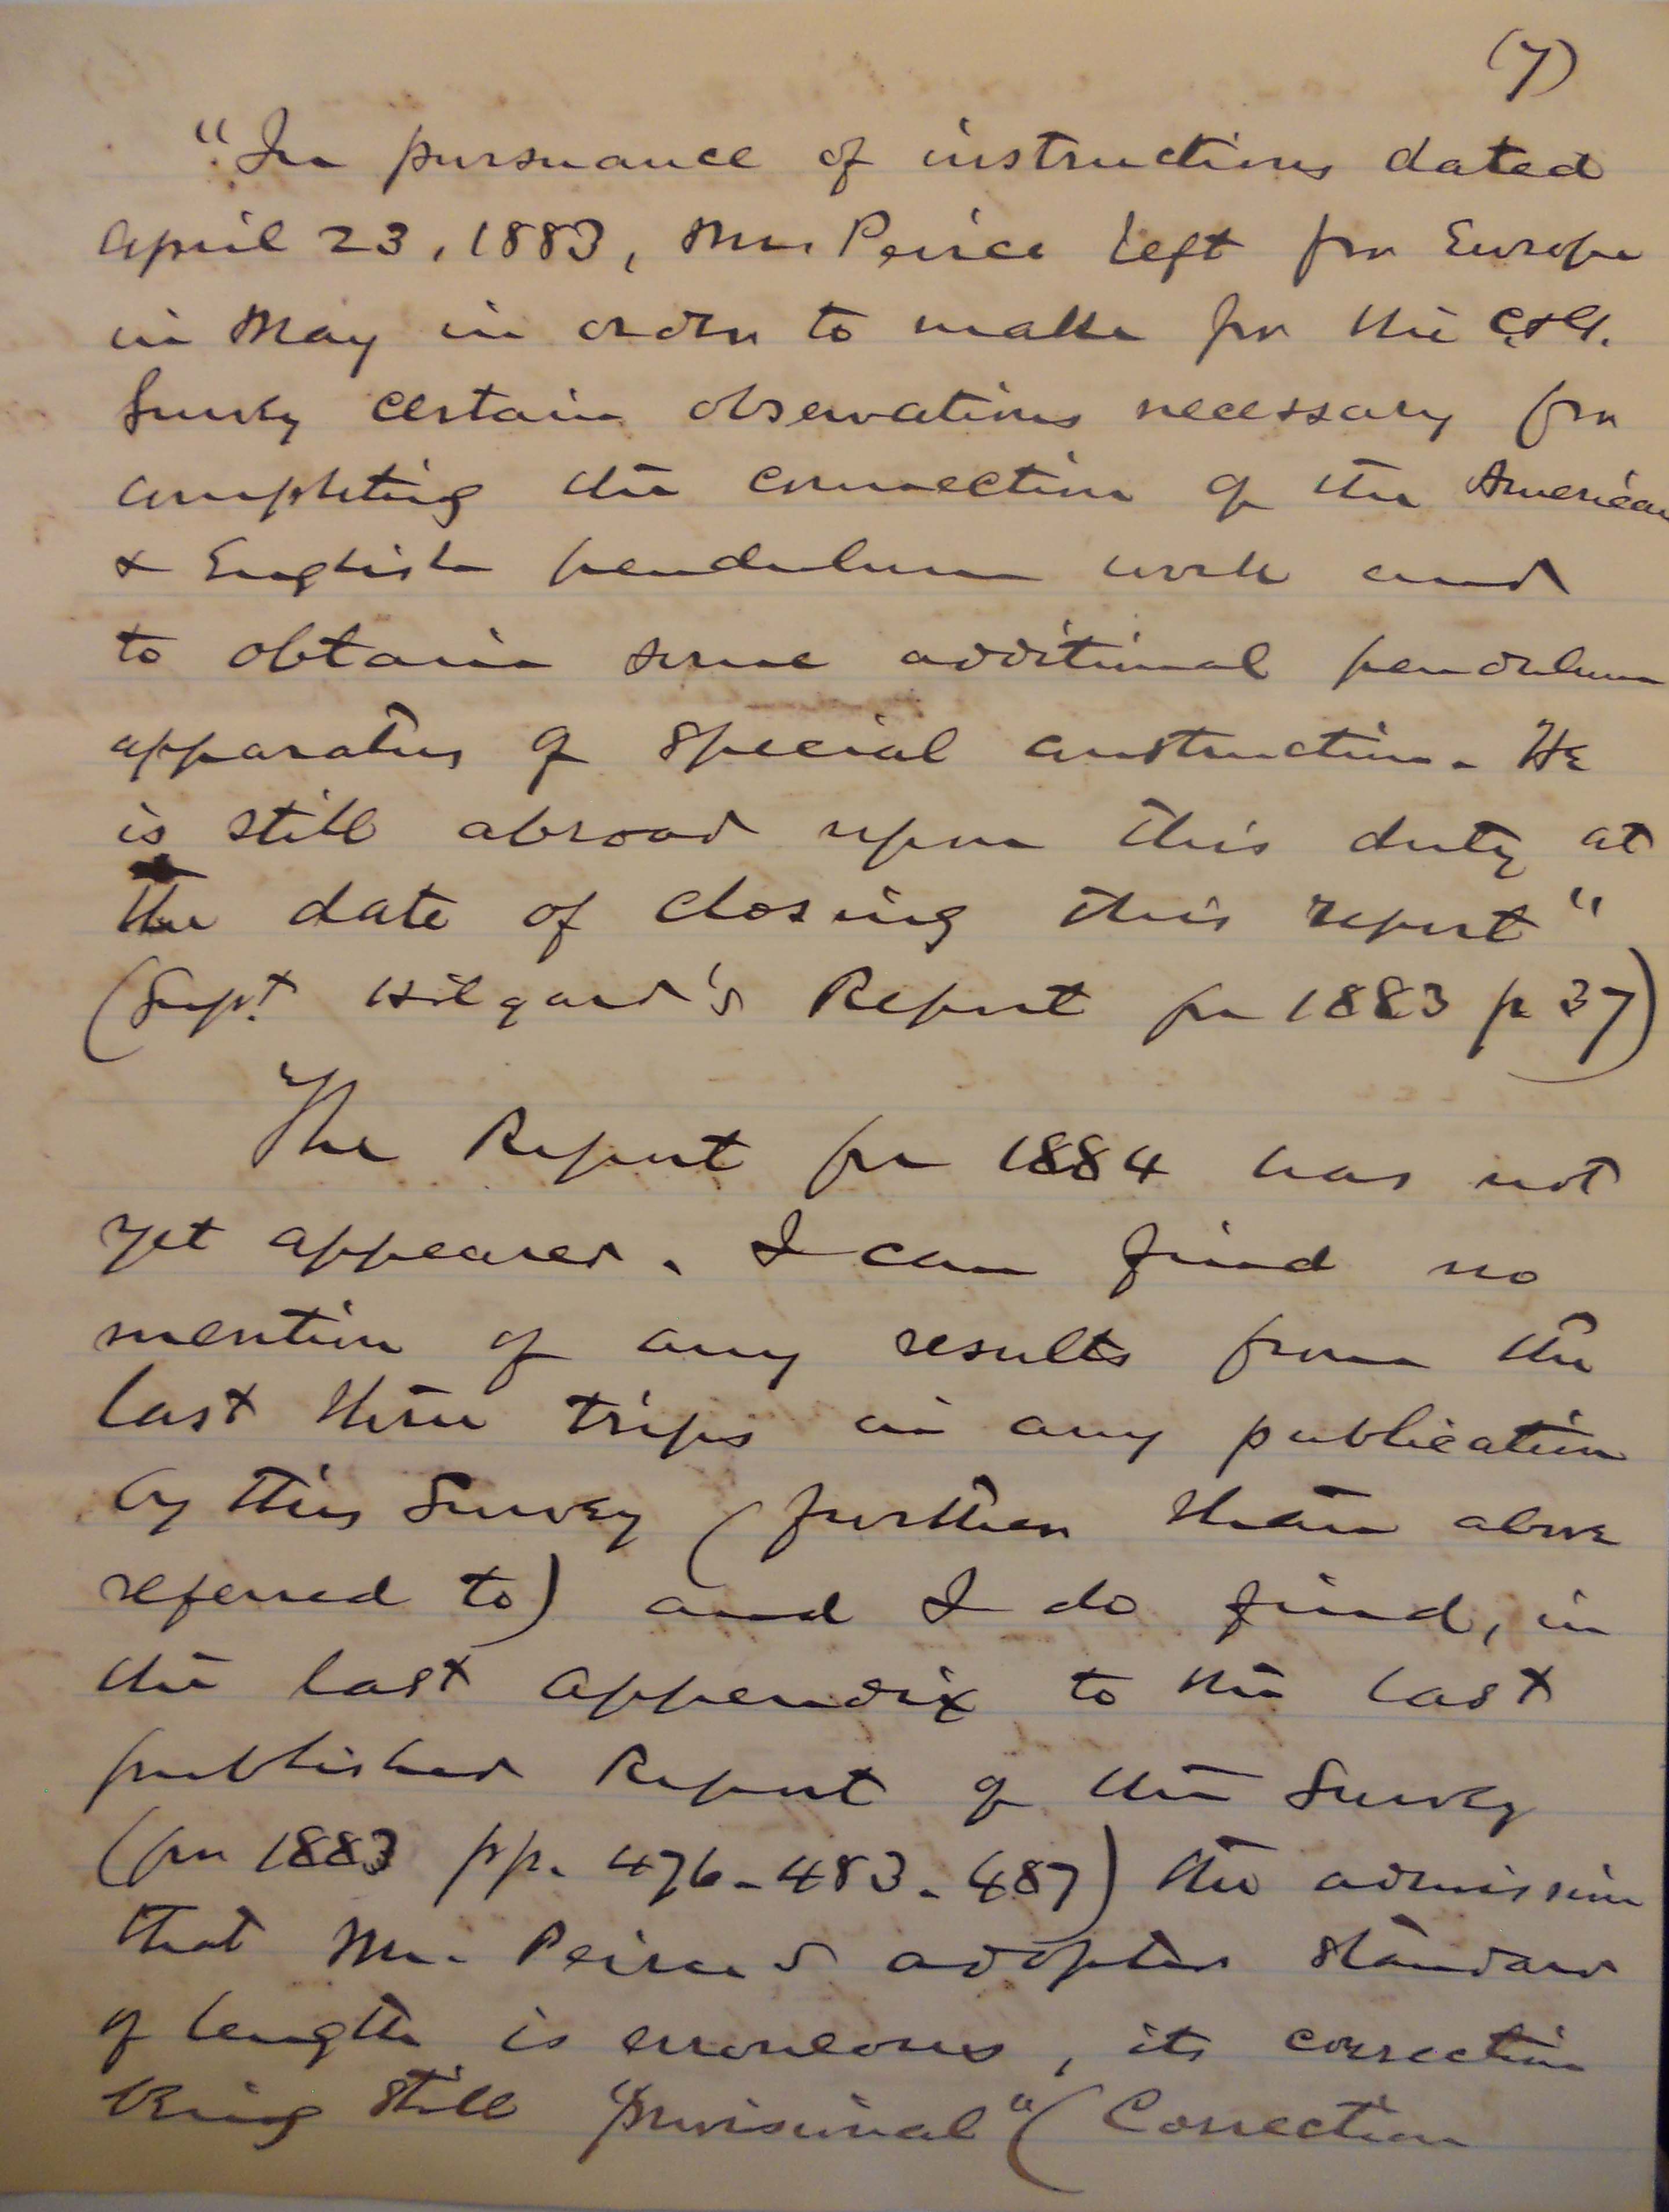 (7)
"In pursuance of instructions dated
April 23, 1883, Mr. Peirce left for Europe
in May in order to make for the C. & G.
Survey certain observations necessary for
completing the connection of the American
& English pendulum work and
to obtain some additional pendulum
apparatus of special construction. He
is still abroad upon this duty at
the date of closing this report"
(Supt. Hilgard's Report for 1883 p 37)
The Report for 1884 has not
yet appeared. I can find no
mention of any results from the
last three trips in any publication
by this Survey (further than above
referred to) and I do find, in
the last appendix to the last
published Report of the Survey
(for 1883 pp. 476-483-487) the admission
that Mr. Peirce's adopted standard
of length is erroneous, its correction
being still "provisional" (Correction